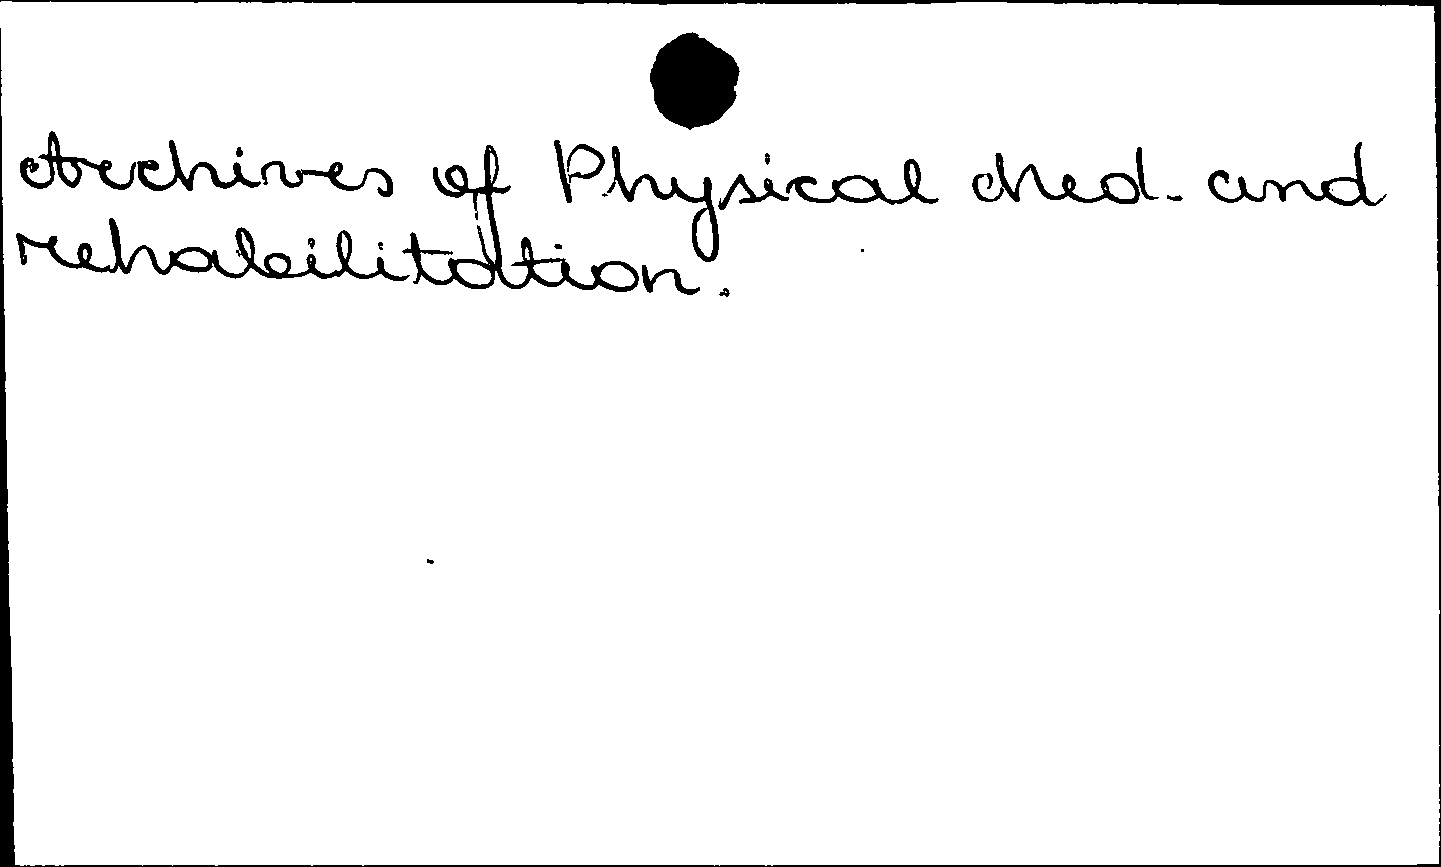 Archives of Physical Med. and
rehabilitation.